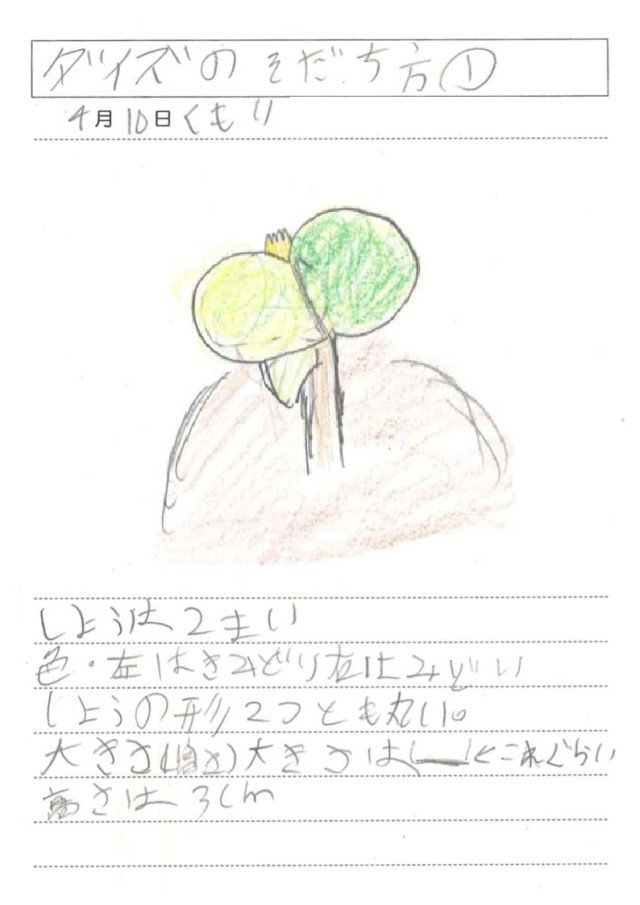 ダイズのそだち方①
4月10日くもり
しようは2まい
色・左はきみどり右はみどり
しようの形2つとも丸い。
大きさ(高さ)大きさは ←これぐらい
高さは3cm